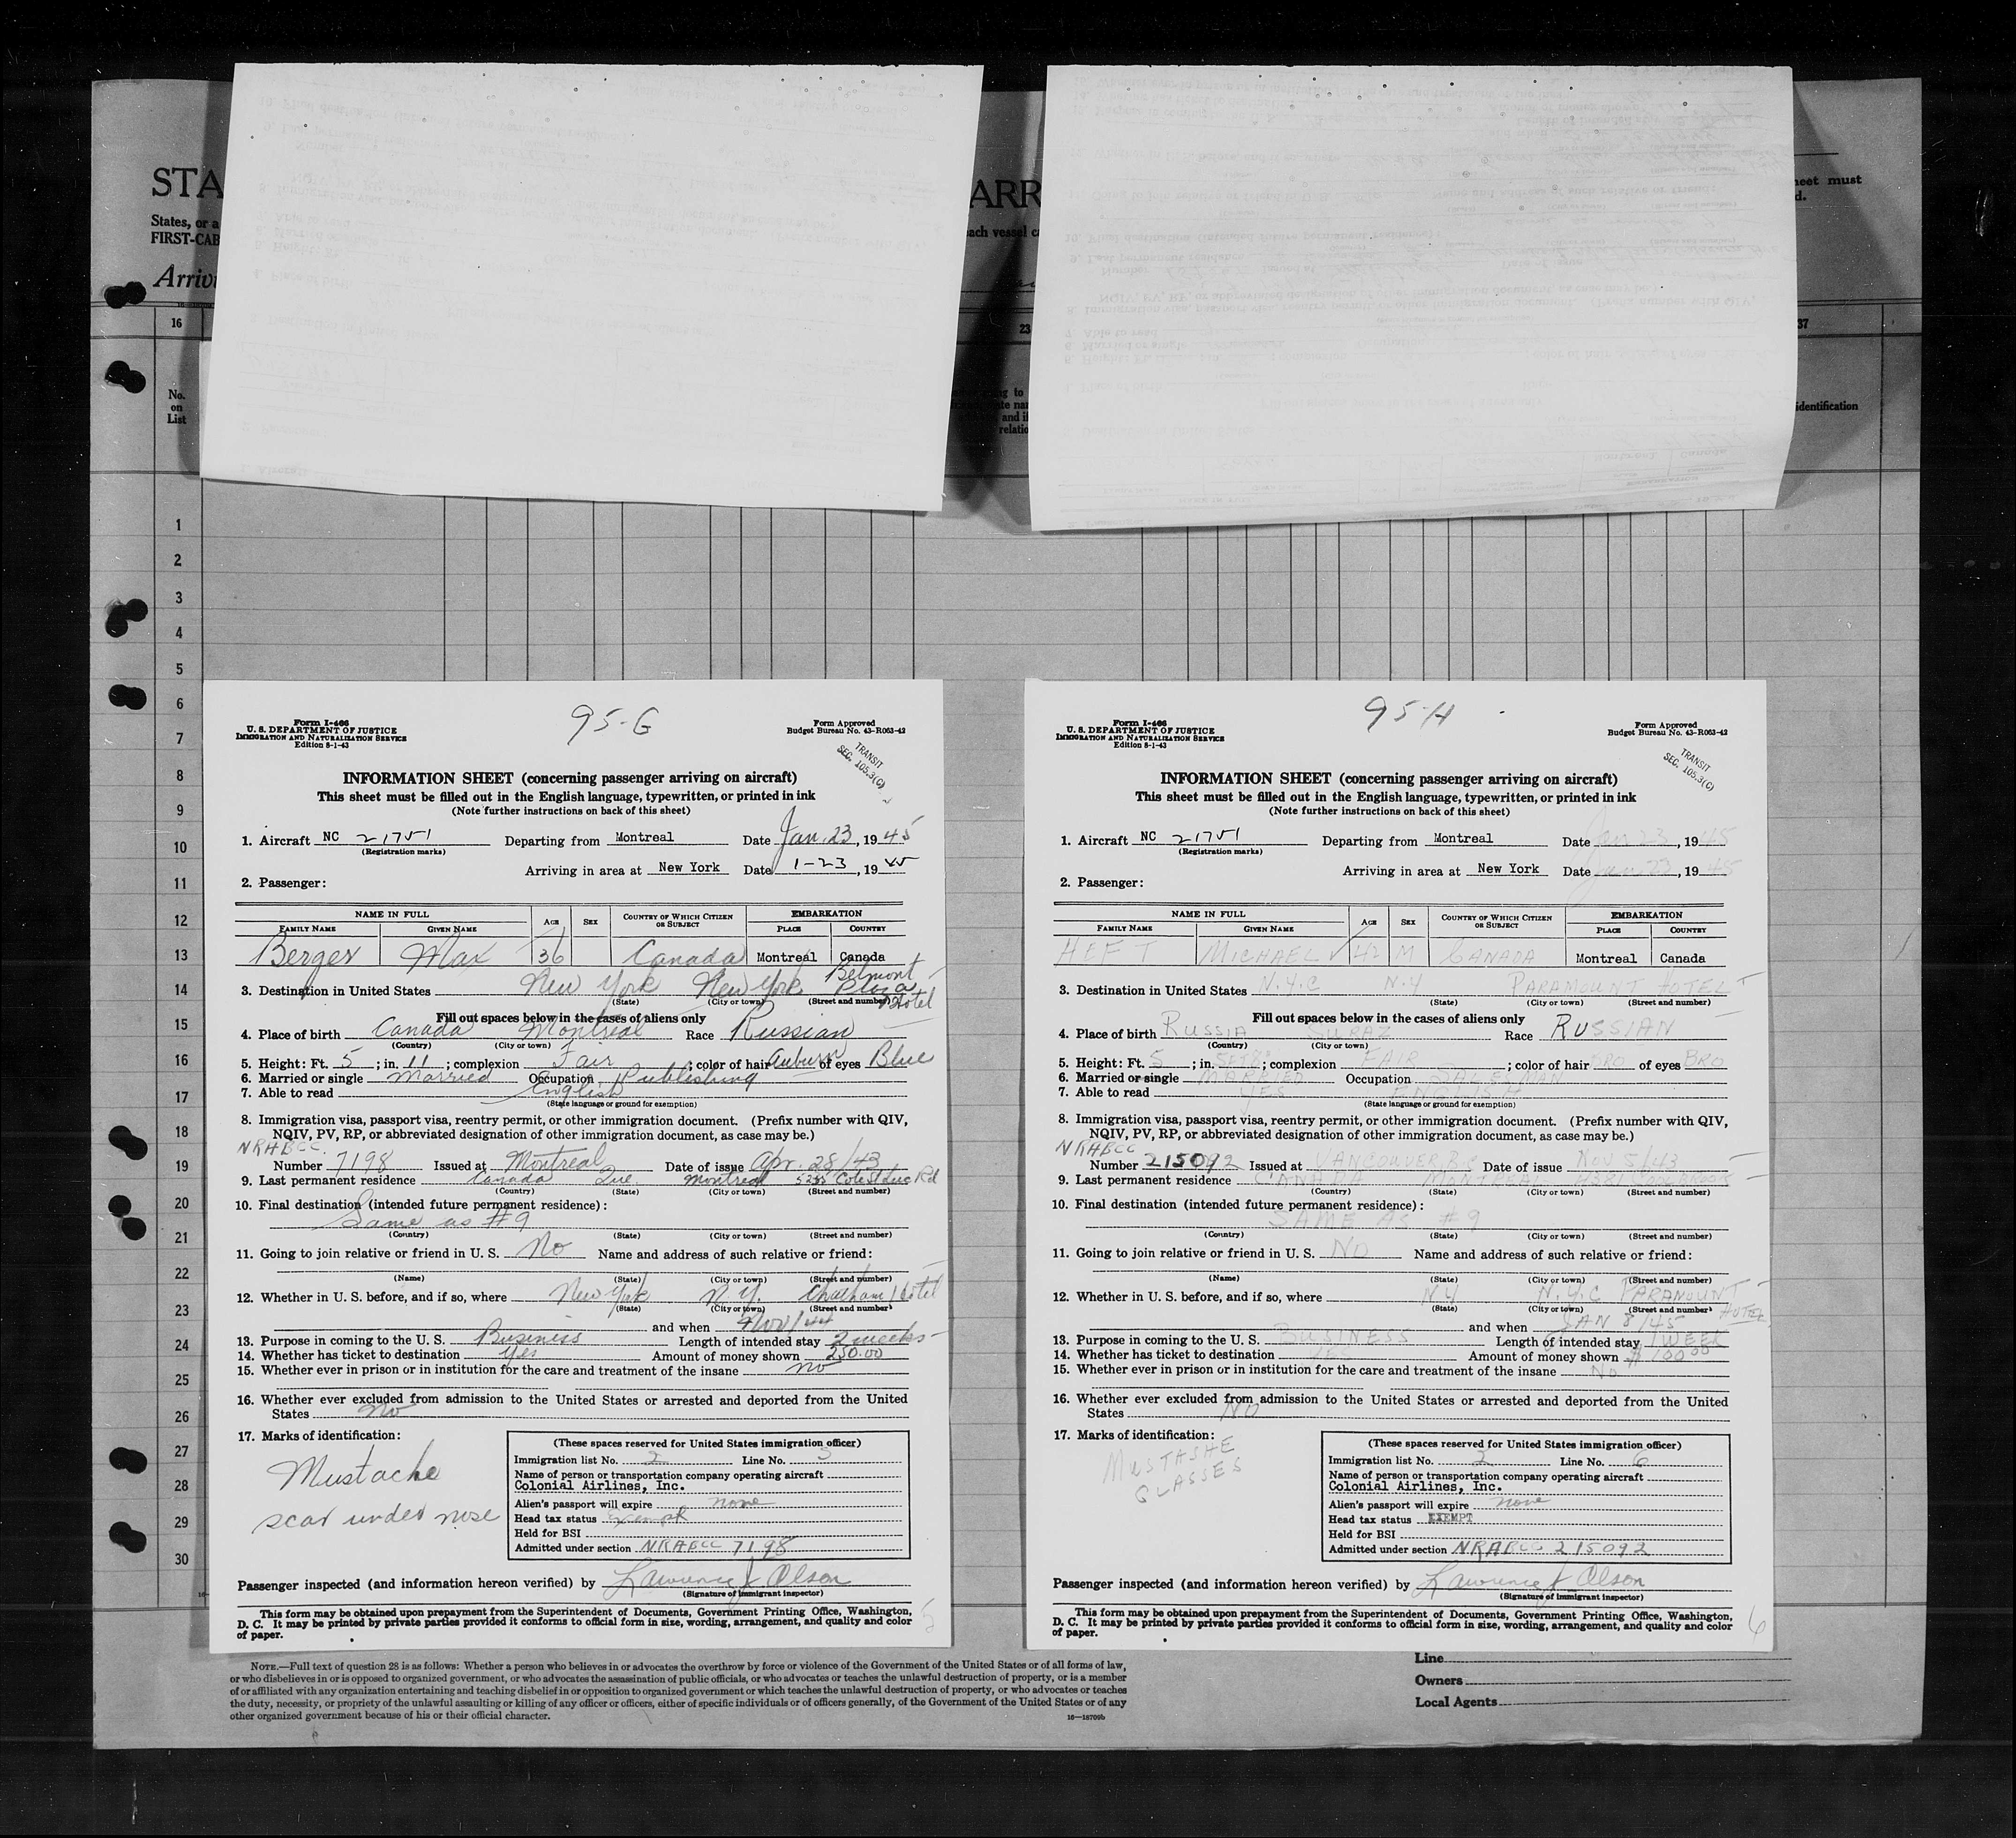 STA
ARR
States, or a
ach vessel c
neet must
d.
FIRST-CAB
Arriv
16
23
37
No.
on
List
identification
1
2
3
4
5
6
7
8
9
10
11
12
13
14
15
16
17
18
19
20
21
22
23
24
25
26
27
28
29
30
95-G
Form I-466
U. S. DEPARTMENT OF JUSTICE
IMMIGRATION AND NATURALIZATION SERVICE
Edition 8-1-43
Form Approved
Budget Bureau No. 43-R063-42
TRANSIT
SEC. 105.3(C)
INFORMATION SHEET (concerning passenger arriving on aircraft)
This sheet must be filled out in the English language, typewritten, or printed in ink
(Note further instructions on back of this sheet)
1. Aircraft NC 21751 Departing from Montreal Date Jan. 23, 1945
(Registration marks)
Arriving in area at New York Date 1-23, 1945
2. Passenger:
NAME IN FULL AGE SEX COUNTRY OF WHICH CITIZEN OR SUBJECT EMBARKATION
FAMILY NAME GIVEN NAME PLACE COUNTRY
Berger Max 36 Canada Montreal Canada
3. Destination in United States New York New York Belmont Plaza Hotel
(State) (City or town) (Street and number)
Fill out spaces below in the cases of aliens only
4. Place of birth Canada Montreal Race Russian
(Country) (City or town)
5. Height: Ft. 5; in. 11; complexion Fair; color of hair Auburn of eyes Blue
6. Married or single Married Occupation Publishing
7. Able to read English
(State language or ground for exemption)
8. Immigration visa, passport visa, reentry permit, or other immigration document. (Prefix number with QIV,
NQIV, PV, RP, or abbreviated designation of other immigration document, as case may be.)
NRHBCC.
Number 7198 Issued at Montreal Date of issue Apr. 28/43
9. Last permanent residence Canada Que. Montreal 5255 Cote St Luc Rd
(Country) (State) (City or town) (Street and number)
10. Final destination (intended future permanent residence):
Same as #9
(Country) (State) (City or town) (Street and number)
11. Going to join relative or friend in U. S. No Name and address of such relative or friend:
(Name) (State) (City or town) (Street and number)
12. Whether in U. S. before, and if so, where New York N.Y. Chatham Hotel
(State) (City or town) (Street and number)
and when Nov/44
13. Purpose in coming to the U. S. Business Length of intended stay 2 weeks
14. Whether has ticket to destination Yes Amount of money shown 250.00
15. Whether ever in prison or in institution for the care and treatment of the insane no
16. Whether ever excluded from admission to the United States or arrested and deported from the United
States no
17. Marks of identification:
Mustache
scar under nose
(These spaces reserved for United States immigration officer)
Immigration list No. 2 Line No. 5
Name of person or transportation company operating aircraft
Colonial Airlines, Inc.
Alien's passport will expire none
Head tax status exempt
Held for BSI
Admitted under section NRHBCC 7198
Passenger inspected (and information hereon verified) by Lawrence J Olson
(Signature of immigrant inspector)
This form may be obtained upon prepayment from the Superintendent of Documents, Government Printing Office, Washington,
D. C. It may be printed by private parties provided it conforms to official form in size, wording, arrangement, and quality and color
of paper.
5
95-H
Form I-466
U. S. DEPARTMENT OF JUSTICE
IMMIGRATION AND NATURALIZATION SERVICE
Edition 8-1-43
Form Approved
Budget Bureau No. 43-R063-42
TRANSIT
SEC. 105.3(C)
INFORMATION SHEET (concerning passenger arriving on aircraft)
This sheet must be filled out in the English language, typewritten, or printed in ink
(Note further instructions on back of this sheet)
1. Aircraft NC 21751 Departing from Montreal Date Jan 23, 1945
(Registration marks)
Arriving in area at New York Date Jan. 23, 1945
2. Passenger:
NAME IN FULL AGE SEX COUNTRY OF WHICH CITIZEN OR SUBJECT EMBARKATION
FAMILY NAME GIVEN NAME PLACE COUNTRY
HEFT MICHAEL 42 M CANADA Montreal Canada
3. Destination in United States N.Y.C N.Y PARAMOUNT HOTEL
(State) (City or town) (Street and number)
Fill out spaces below in the cases of aliens only
4. Place of birth RUSSIA SURAZ Race RUSSIAN
(Country) (City or town)
5. Height: Ft. 5; in.; complexion FAIR; color of hair BRO of eyes BRO
6. Married or single MARRIED Occupation SALESMAN
7. Able to read YES ENGLISH
(State language or ground for exemption)
8. Immigration visa, passport visa, reentry permit, or other immigration document. (Prefix number with QIV,
NQIV, PV, RP, or abbreviated designation of other immigration document, as case may be.)
NRHBCC
Number 215092 Issued at VANCOUVER B.C Date of issue NOV 5/43
9. Last permanent residence CANADA MONTREAL
(Country) (State) (City or town) (Street and number)
10. Final destination (intended future permanent residence):
SAME AS #9
(Country) (State) (City or town) (Street and number)
11. Going to join relative or friend in U. S. NO Name and address of such relative or friend:
(Name) (State) (City or town) (Street and number)
12. Whether in U. S. before, and if so, where NY N.Y.C PARAMOUNT HOTEL
(State) (City or town) (Street and number)
and when JAN 8/45
13. Purpose in coming to the U. S. BUSINESS Length of intended stay 1 WEEK
14. Whether has ticket to destination YES Amount of money shown $100.00
15. Whether ever in prison or in institution for the care and treatment of the insane NO
16. Whether ever excluded from admission to the United States or arrested and deported from the United
States NO
17. Marks of identification:
MUSTASHE
GLASSES
(These spaces reserved for United States immigration officer)
Immigration list No. 2 Line No. 6
Name of person or transportation company operating aircraft
Colonial Airlines, Inc.
Alien's passport will expire none
Head tax status EXEMPT
Held for BSI
Admitted under section NRHBCC 215092
Passenger inspected (and information hereon verified) by Lawrence J Olson
(Signature of immigrant inspector)
This form may be obtained upon prepayment from the Superintendent of Documents, Government Printing Office, Washington,
D. C. It may be printed by private parties provided it conforms to official form in size, wording, arrangement, and quality and color
of paper.
6
NOTE.—Full text of question 28 is as follows: Whether a person who believes in or advocates the overthrow by force or violence of the Government of the United States or of all forms of law,
or who disbelieves in or is opposed to organized government, or who advocates the assassination of public officials, or who advocates or teaches the unlawful destruction of property, or is a member
of or affiliated with any organization entertaining and teaching disbelief in or opposition to organized government or which teaches the unlawful destruction of property, or who advocates or teaches
the duty, necessity, or propriety of the unlawful assaulting or killing of any officer or officers, either of specific individuals or of officers generally, of the Government of the United States or of any
other organized government because of his or their official character.
16—18709b
Line
Owners
Local Agents